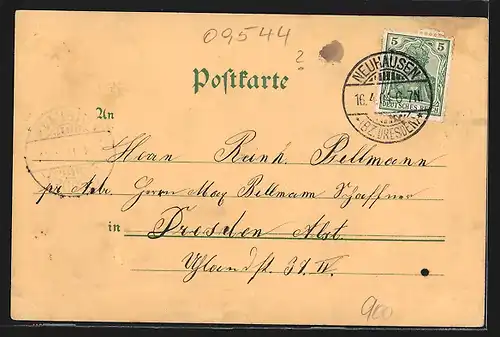 09544
?
5 5
DEUTSCHES REICH
NEUHAUSEN
16.4. 6-7N.
*(BZ.DRESDEN)*
Postkarte
An
Herrn Reinh. Bellmann
pr. Adr. Herrn Max Bellmann Schaffner
in Dresden Alst.
Uhlandst. 37. IV.
900